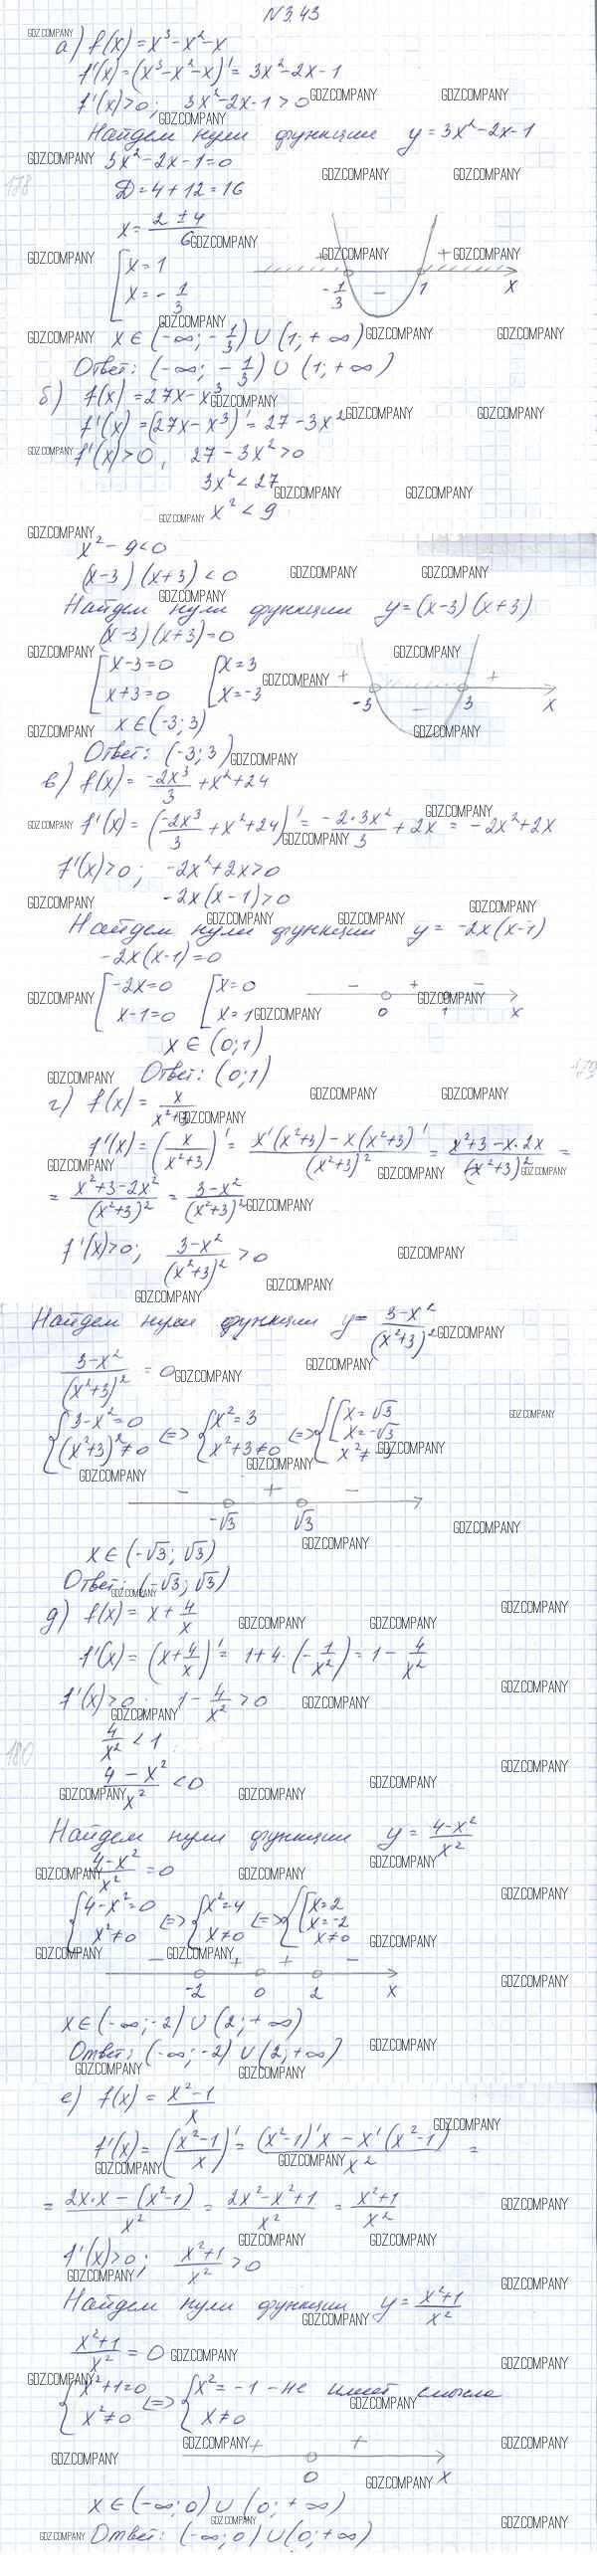 N 3.43
а) f(x) = x³ - x² - x
f'(x) = (x³ - x² - x)' = 3x² - 2x - 1
f'(x) > 0; 3x² - 2x - 1 > 0
Найдем нули функции y = 3x² - 2x - 1
3x² - 2x - 1 = 0
178
D = 4 + 12 = 16
x = (2 ± 4)/6
[ x = 1
[ x = -1/3
+ - + -1/3 1 x
x ∈ (-∞; -1/3) ∪ (1; +∞)
Ответ: (-∞; -1/3) ∪ (1; +∞)
б) f(x) = 27x - x³
f'(x) = (27x - x³)' = 27 - 3x²
f'(x) > 0, 27 - 3x² > 0
3x² < 27
x² < 9
x² - 9 < 0
(x-3)(x+3) < 0
Найдем нули функции y = (x-3)(x+3)
(x-3)(x+3) = 0
[ x-3=0 [ x=3
[ x+3=0 [ x=-3
+ - + -3 3 x
x ∈ (-3; 3)
Ответ: (-3; 3)
в) f(x) = -2x³/3 + x² + 24
f'(x) = (-2x³/3 + x² + 24)' = -2·3x²/3 + 2x = -2x² + 2x
f'(x) > 0; -2x² + 2x > 0
-2x(x-1) > 0
Найдем нули функции y = -2x(x-1)
-2x(x-1) = 0
[ -2x=0 [ x=0
[ x-1=0 [ x=1
- + - 0 1 x
x ∈ (0; 1)
Ответ: (0; 1)
г) f(x) = x/(x²+3)
f'(x) = (x/(x²+3))' = (x'(x²+3) - x(x²+3)')/(x²+3)² = (x²+3-x·2x)/(x²+3)² =
= (x²+3-2x²)/(x²+3)² = (3-x²)/(x²+3)²
f'(x) > 0; (3-x²)/(x²+3)² > 0
Найдем нули функции y = (3-x²)/(x²+3)²
(3-x²)/(x²+3)² = 0
{ 3-x²=0 <=> { x²=3 <=> { [ x=√3
[ x=-√3
{ (x²+3)²≠0 { x²+3≠0 { x²≠-3
- + - -√3 √3
x ∈ (-√3; √3)
Ответ: (-√3; √3)
д) f(x) = x + 4/x
f'(x) = (x + 4/x)' = 1 + 4·(-1/x²) = 1 - 4/x²
f'(x) > 0; 1 - 4/x² > 0
180
4/x² < 1
(4-x²)/x² < 0
Найдем нули функции y = (4-x²)/x²
(4-x²)/x² = 0
{ 4-x²=0 <=> { x²=4 <=> { [ x=2
[ x=-2
{ x²≠0 { x≠0 { x≠0
- + + - -2 0 2 x
x ∈ (-∞; -2) ∪ (2; +∞)
Ответ: (-∞; -2) ∪ (2; +∞)
е) f(x) = (x²-1)/x
f'(x) = ((x²-1)/x)' = ((x²-1)'x - x'(x²-1))/x² =
= (2x·x - (x²-1))/x² = (2x²-x²+1)/x² = (x²+1)/x²
f'(x) > 0; (x²+1)/x² > 0
Найдем нули функции y = (x²+1)/x²
(x²+1)/x² = 0
{ x²+1=0 <=> { x²=-1 - не имеет смысла
{ x²≠0 { x≠0
+ + 0 x
x ∈ (-∞; 0) ∪ (0; +∞)
Ответ: (-∞; 0) ∪ (0; +∞)
GDZ.COMPANY